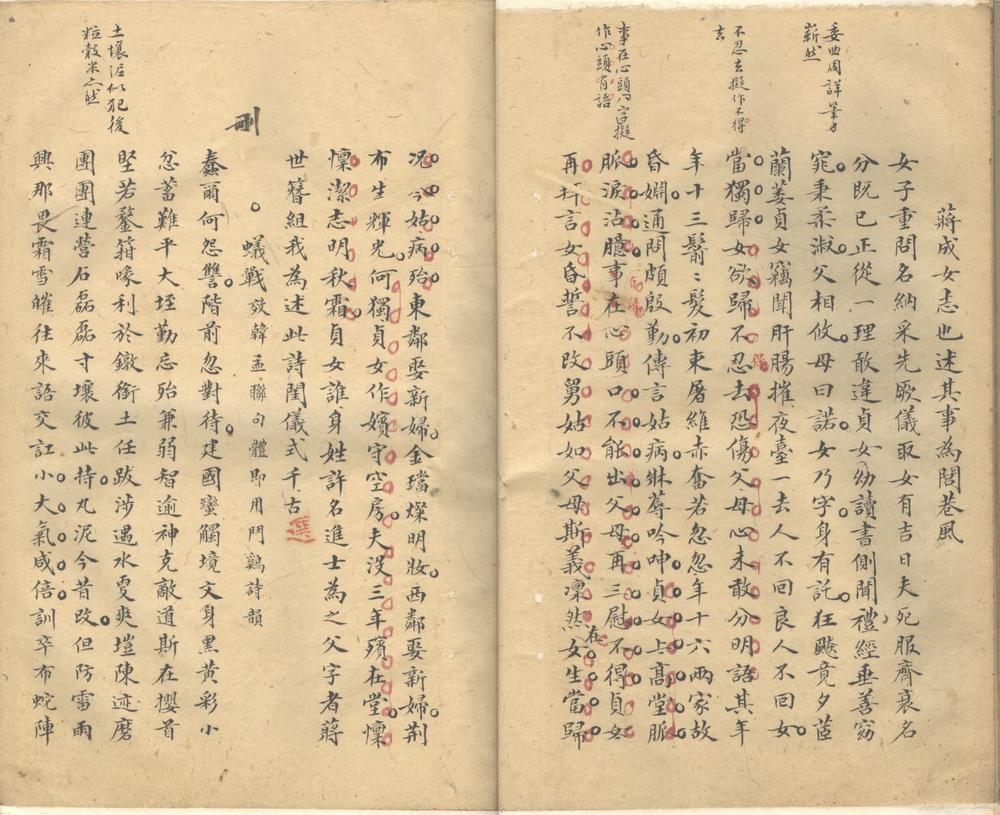 委曲周詳筆力
嶄然
不忍去擬作不得
去
事在心頭八字擬
作心頭有語
蔣成女志也述其事為閭巷風
女子重問名納采先厥儀取女有吉日夫死服齊衰名
分既已正從一理敢違貞女幼讀書側聞禮經垂善窈
窕秉柔淑父相攸母曰諾女乃字身有託狂飇竟夕茝
蘭萎貞女竊聞肝腸摧夜臺一去人不回良人不回女
當獨歸女欲歸不忍去恐傷父母心未敢分明語其年
年十三鬋鬋髮初束屠維赤奮若忽忽年十六兩家故
昏姻通問頗殷勤傳言姑病牀蓐吟呻貞女上高堂脈
脈淚沾臆事在心頭口不能出父母再三慰不得貞女
再拜言女昏誓不改舅姑如父母斯義凜然在女生當歸
況今姑病殆東鄰娶新婦金璫燦明妝西鄰娶新婦荆
布生輝光何獨貞女作嬪守空房夫沒三年殯在堂懍
懍潔志明秋霜貞女誰身姓許名進士為之父字者蔣
世簪組我為述此詩閨儀式千古
刪
蟻戰效韓孟聯句體即用鬥鷄詩韻
蠢爾何怨讐階前忽對待建國蠻觸境文身黑黃彩小
忿蓄難平大垤勤忘殆兼弱智逾神克敵道斯在櫻首
堅若鏊箝喙利於鐓銜土任跋涉遇水叓爽塏陳迹磨
團團連營石磊磊寸壤彼此持丸泥今昔改但防雷雨
興那畏霜雪皠往來語交訌小大氣咸倍訓卒布蛇陣
土壤泥似犯後
粒穀米亦然